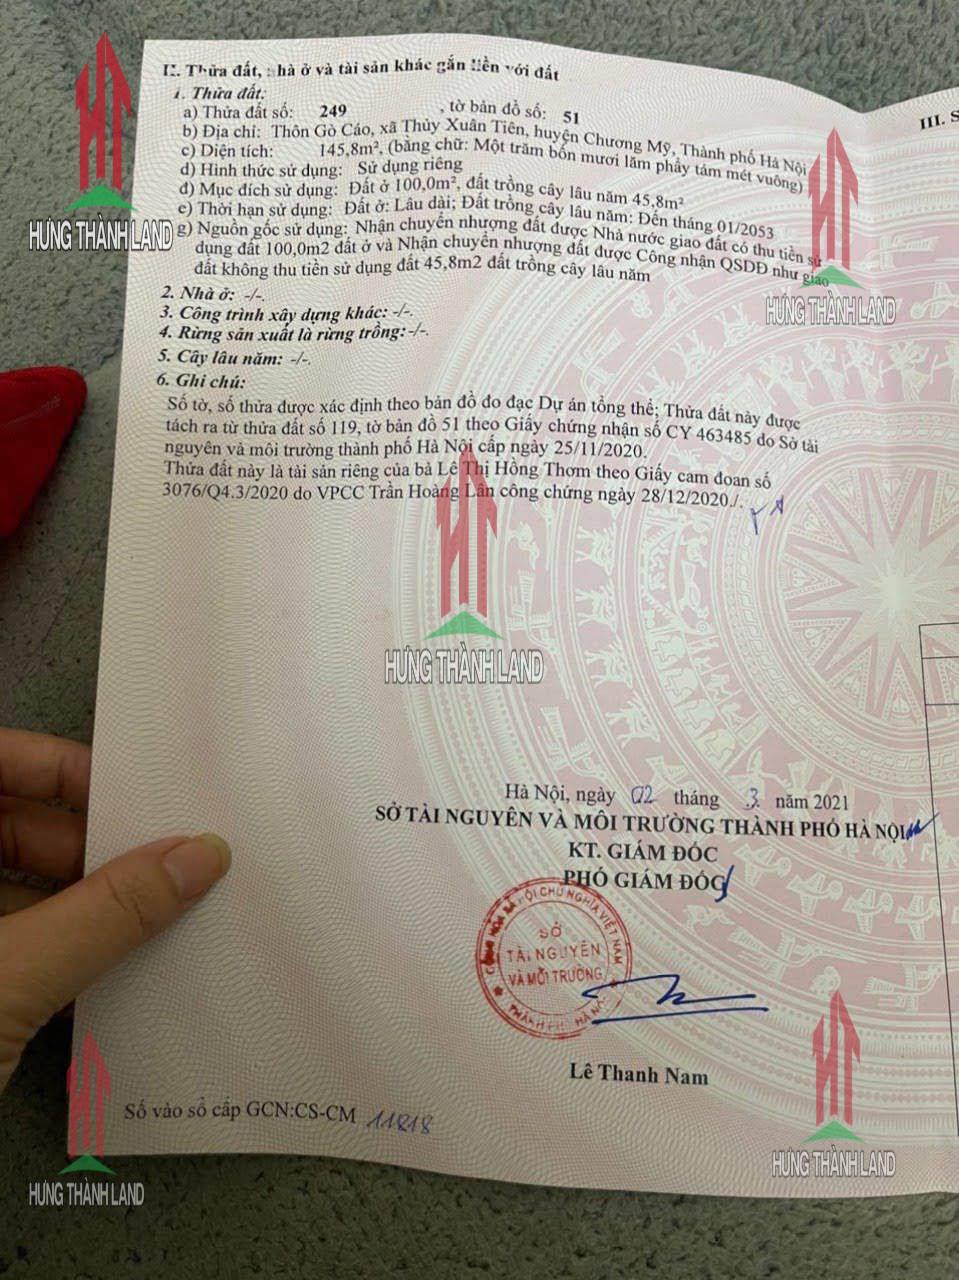 II. Thửa đất, nhà ở và tài sản khác gắn liền với đất
1. Thửa đất:
a) Thửa đất số: 249 , tờ bản đồ số: 51
b) Địa chỉ: Thôn Gò Cáo, xã Thủy Xuân Tiên, huyện Chương Mỹ, Thành phố Hà Nội
c) Diện tích: 145,8m², (bằng chữ: Một trăm bốn mươi lăm phẩy tám mét vuông)
d) Hình thức sử dụng: Sử dụng riêng
đ) Mục đích sử dụng: Đất ở 100,0m², đất trồng cây lâu năm 45,8m²
e) Thời hạn sử dụng: Đất ở: Lâu dài; Đất trồng cây lâu năm: Đến tháng 01/2053
g) Nguồn gốc sử dụng: Nhận chuyển nhượng đất được Nhà nước giao đất có thu tiền sử
dụng đất 100,0m2 đất ở và Nhận chuyển nhượng đất được Công nhận QSDĐ như giao
đất không thu tiền sử dụng đất 45,8m2 đất trồng cây lâu năm
2. Nhà ở: -/-.
3. Công trình xây dựng khác: -/-.
4. Rừng sản xuất là rừng trồng: -/-.
5. Cây lâu năm: -/-.
6. Ghi chú:
Số tờ, số thửa được xác định theo bản đồ đo đạc Dự án tổng thể; Thửa đất này được
tách ra từ thửa đất số 119, tờ bản đồ 51 theo Giấy chứng nhận số CY 463485 do Sở tài
nguyên và môi trường thành phố Hà Nội cấp ngày 25/11/2020.
Thửa đất này là tài sản riêng của bà Lê Thị Hồng Thơm theo Giấy cam đoan số
3076/Q4.3/2020 do VPCC Trần Hoàng Lân công chứng ngày 28/12/2020./.
III. S
Hà Nội, ngày 02 tháng 3 năm 2021
SỞ TÀI NGUYÊN VÀ MÔI TRƯỜNG THÀNH PHỐ HÀ NỘI
KT. GIÁM ĐỐC
PHÓ GIÁM ĐỐC
CỘNG HÒA XÃ HỘI CHỦ NGHĨA VIỆT NAM
SỞ
TÀI NGUYÊN
VÀ MÔI TRƯỜNG
THÀNH PHỐ HÀ NỘI
Lê Thanh Nam
Số vào sổ cấp GCN:CS-CM 11818
HƯNG THÀNH LAND
HƯNG THÀNH LAND
HƯNG THÀNH LAND
HƯNG THÀNH LAND
HƯNG THÀNH LAND